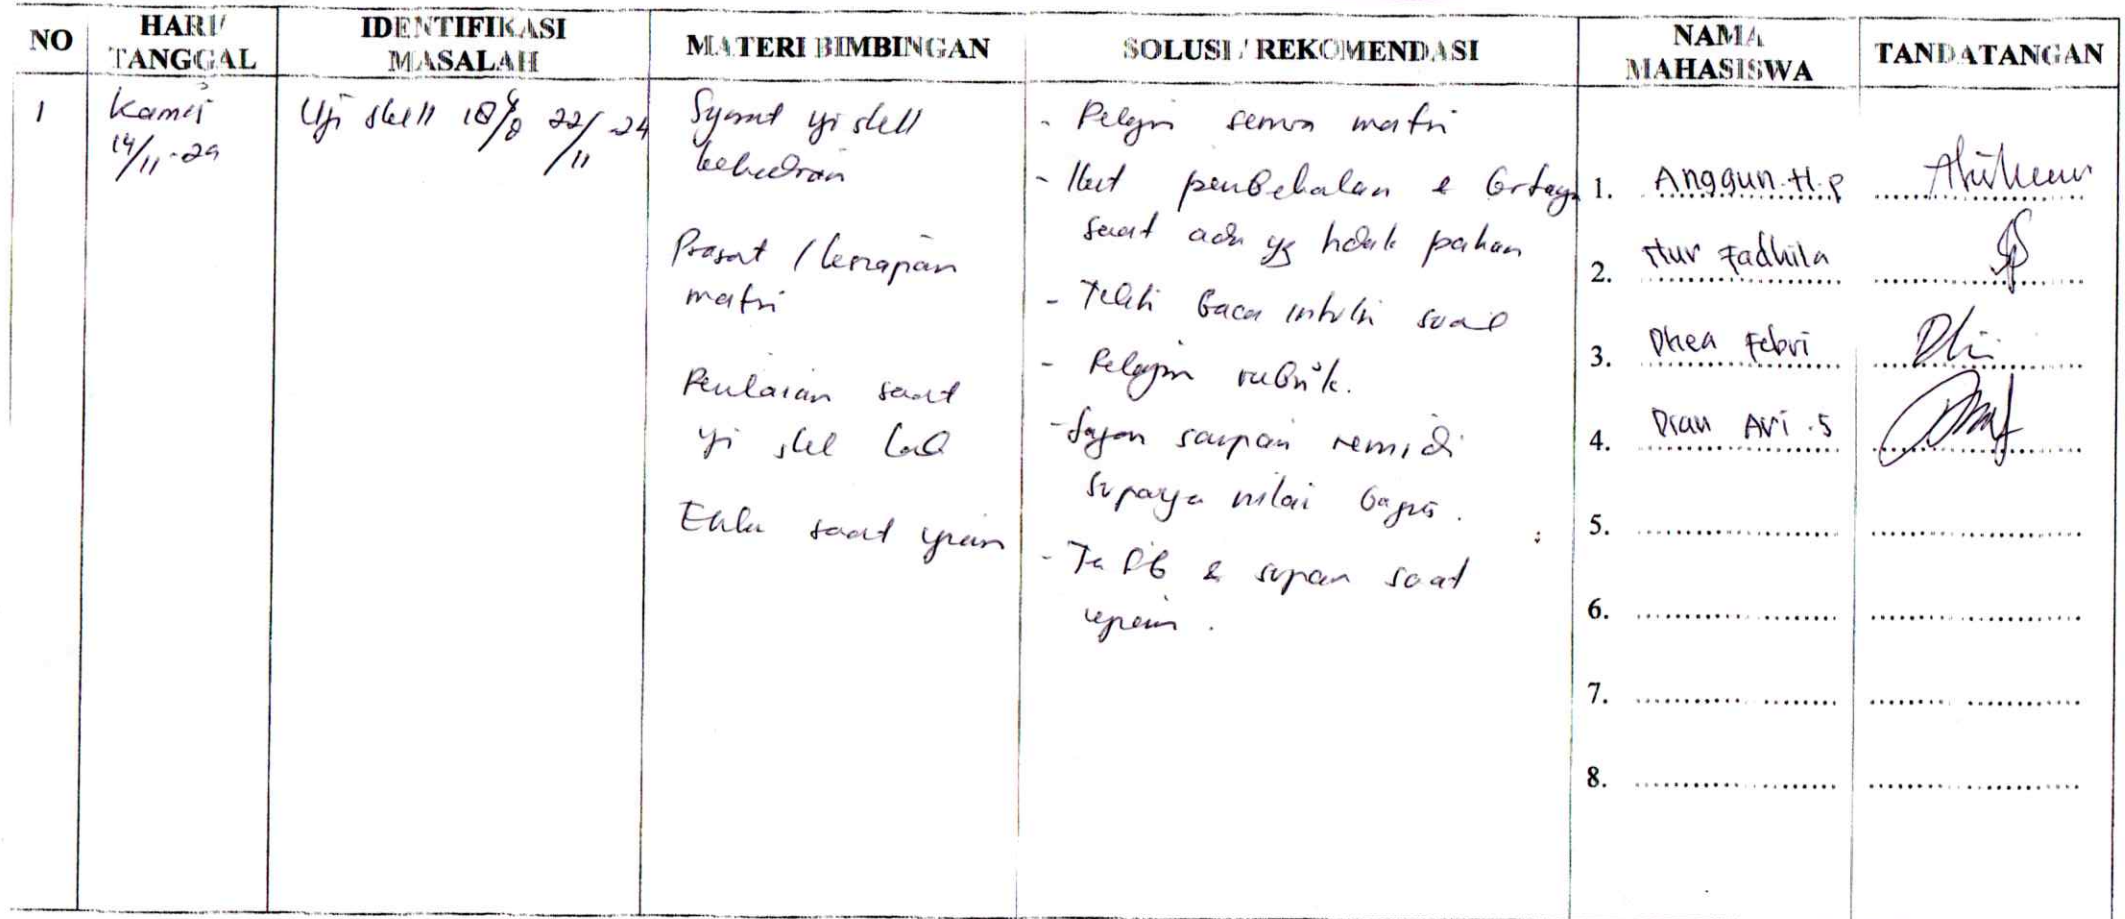 NO
HARI/
TANGGAL
IDENTIFIKASI
MASALAH
MATERI BIMBINGAN
SOLUSI / REKOMENDASI
NAMA
MAHASISWA
TANDATANGAN
1
Kamis
14/11-24
Uji skill 18/ 22/11-24
Syarat uji skill
kehadiran
/ kerapian
materi
Penilaian saat
uji skill lab
Etika saat ujian
- Pelajari semua materi
- Ikut pembekalan & bertanya
saat ada yg tidak paham
- Teliti baca soal
- Pelajari rubrik.
- Jangan sampai remidi
supaya nilai bagus.
- & sopan saat
ujian.
1. Anggun.H.P
2. Nur Fadhila
3. Dhea Febri
4. Dian Ari.S
5.
6.
7.
8.